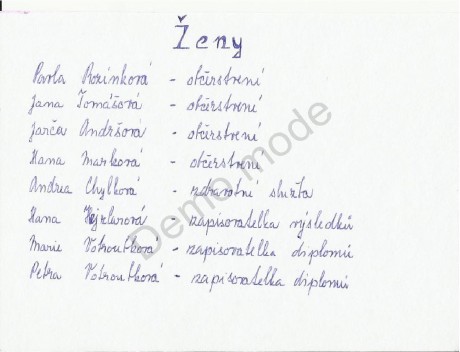 Ženy
Pavla Rozínková - občerstvení
Jana Tomášová - občerstvení
Jarča Andršová - občerstvení
Hana Marková - občerstvení
Andrea Chylková - zdravotní služba
Hana - zapisovatelka výsledků
Marie Votroubková - zapisovatelka diplomů
Petra Votroubková - zapisovatelka diplomů
Demo mode